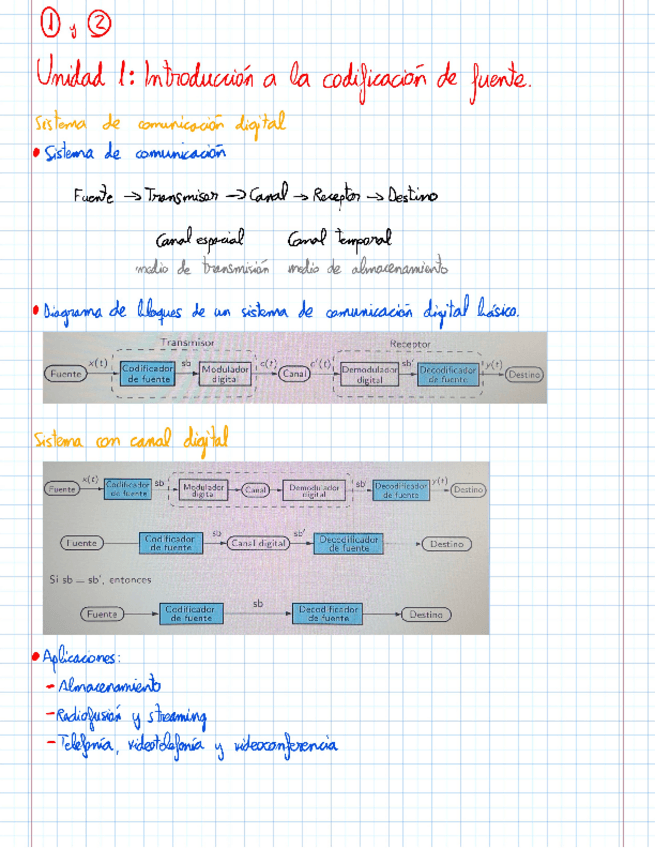 ① y ②
Unidad 1: Introducción a la codificación de fuente.
Sistema de comunicación digital
• Sistema de comunicación
Fuente → Transmisor → Canal → Receptor → Destino
Canal espacial Canal temporal
medio de transmisión medio de almacenamiento
• Diagrama de bloques de un sistema de comunicación digital básico.
Transmisor Receptor
Fuente x(t) Codificador de fuente sb Modulador digital c(t) Canal c'(t) Demodulador digital sb' Decodificador de fuente y(t) Destino
Sistema con canal digital
Fuente x(t) Codificador de fuente sb Modulador digital Canal Demodulador digital sb' Decodificador de fuente y(t) Destino
Fuente Codificador de fuente sb Canal digital sb' Decodificador de fuente Destino
Si sb = sb', entonces
Fuente Codificador de fuente sb Decodificador de fuente Destino
• Aplicaciones:
- Almacenamiento
- Radiofusión y streaming
- Telefonía, videotelefonía y videoconferencia